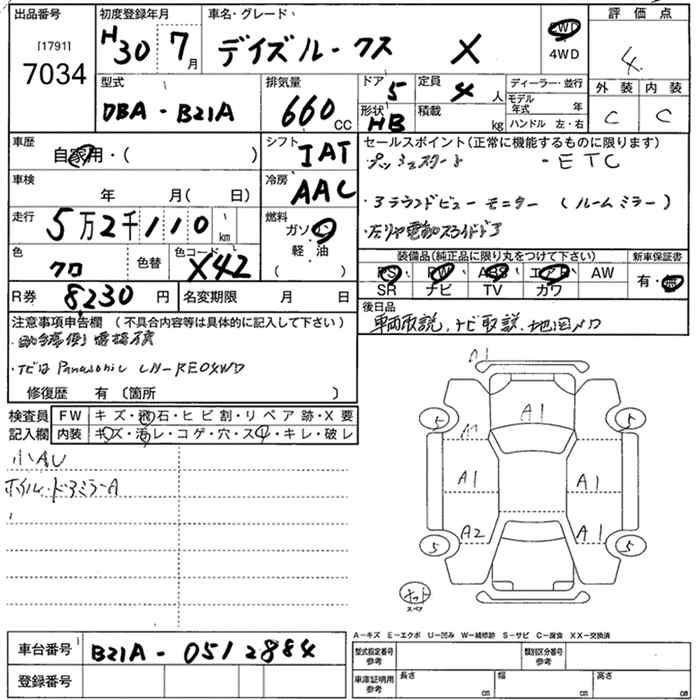 出品番号
[1791]
7034
初度登録年月
H30 7月
車名・グレード
デイズルークス X
2WD
4WD
評価点
4
外装 内装
C C
型式
DBA-B21A
排気量
660 CC
ドア 5
形状 HB
定員 4人
積載 kg
ディーラー・並行
モデル年式 年
ハンドル 左・右
車歴
自家用・( )
シフト IAT
車検
年 月( 日)
冷房 AAC
走行
5万2千110 km
燃料
ガソリン
軽・油
( )
色
クロ
色替
色コード X42
R券 8,230円
名変期限 月 日
セールスポイント(正常に機能するものに限ります)
・プッシュスタート ・ETC
・アラウンドビューモニター (ルームミラー)
・左リヤ電動スライドドア
装備品(純正品に限り丸をつけて下さい)
PS PW ABS エアB AW
SR ナビ TV カワ
新車保証書
有・無
後日品
車両取説、ナビ取説、地図メロ
注意事項申告欄 (不具合内容等は具体的に記入して下さい)
・ナビは Panasonic CN-RE04WD
修復歴 有 (箇所 )
検査員記入欄
FW キズ・飛石・ヒビ割・リペア跡・X要
内装 キズ・汚レ・コゲ・穴・スレ・キレ・破レ
小AU
ホイル・ドアミラーA
A1
A1
A1
A1
A1
A2
A1
5
5
5
5
スペア
A−キズ E−エクボ U−凹み W−補修跡 S−サビ C−腐食 XX−交換済
車台番号
B21A-0512884
登録番号
型式指定番号 参考
類別区分番号 参考
車庫証明用 参考
長さ cm
幅 cm
高さ cm